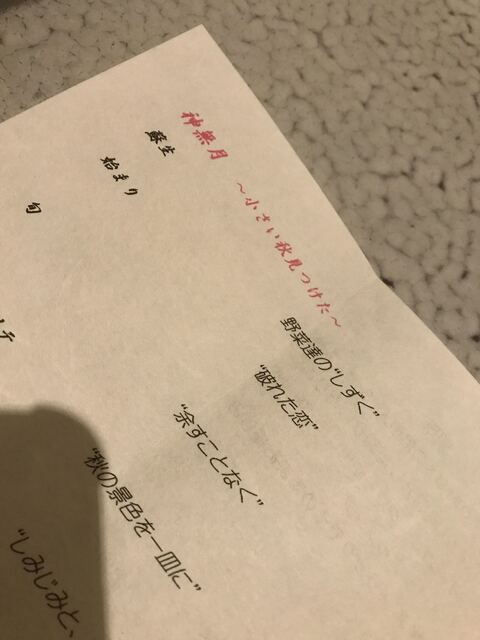 神無月 ～小さい秋見つけた～
蘇生 野菜達の“しずく”
始まり “破れた恋”
旬 “余すことなく”
“秋の景色を一皿に”
“しみじみと、